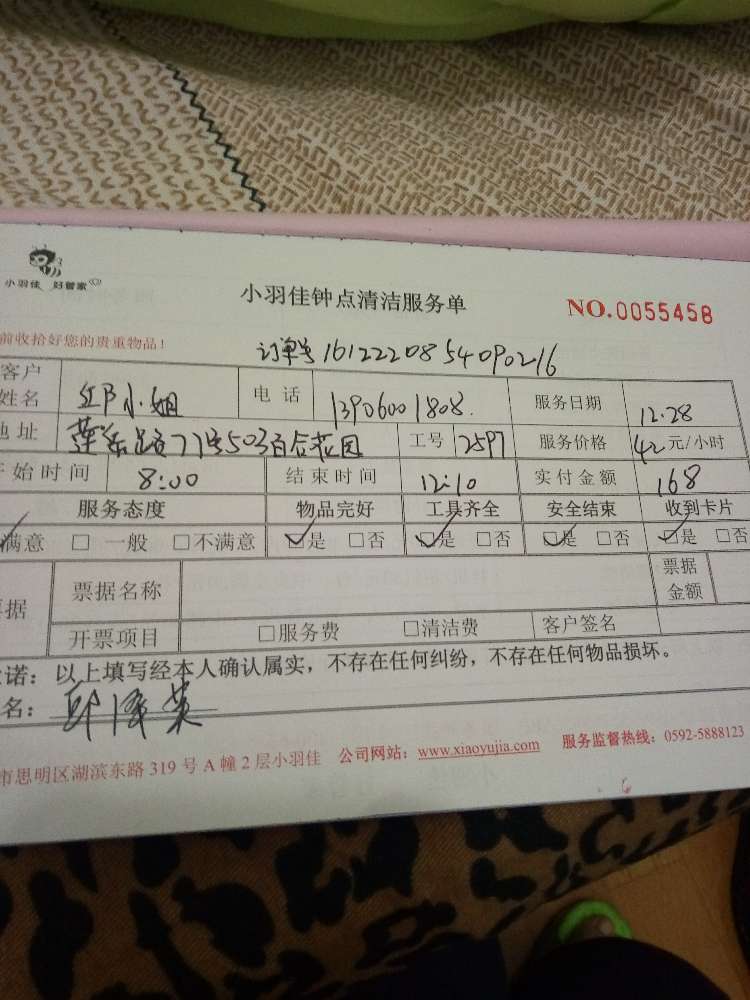 小羽佳 好管家
小羽佳钟点清洁服务单
NO.0055458
前收拾好您的贵重物品!
订单号 1612220854090216
客户姓名 小姐 电话 13906001808. 服务日期 12.28
地址 莲 路77号503百合花园 工号 2597 服务价格 42元/小时
开始时间 8:00 结束时间 12:10 实付金额 168
服务态度 物品完好 工具齐全 安全结束 收到卡片
满意 □一般 □不满意 □是 □否 □是 □否 □是 □否 □是 □否
票据 票据名称 票据金额
开票项目 □服务费 □清洁费 客户签名
诺:以上填写经本人确认属实,不存在任何纠纷,不存在任何物品损坏。
名: 英
市思明区湖滨东路319号A幢2层小羽佳 公司网站:www.xiaoyujia.com 服务监督热线:0592-5888123